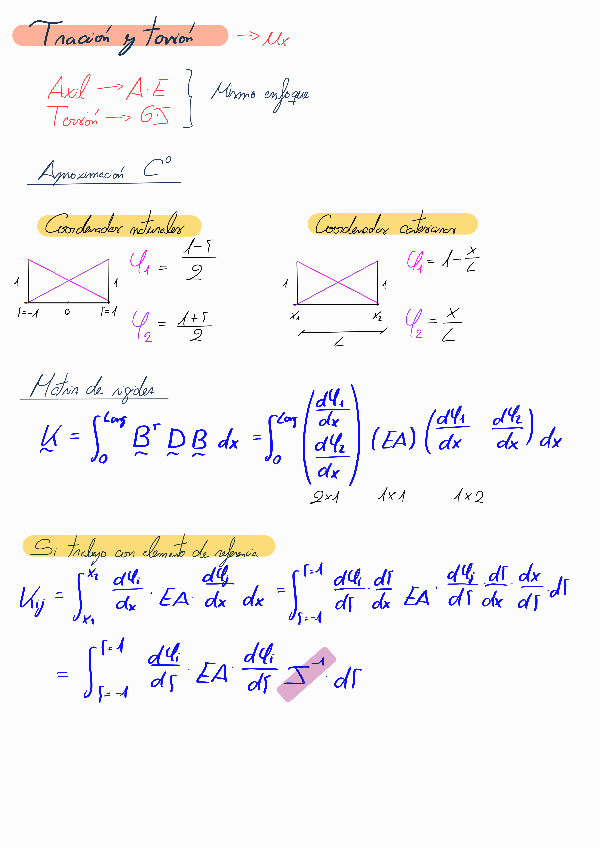 Tracción y torsión → Mx
Axil → A·E
Torsión → GJ
} Mismo enfoque
Aproximación C⁰
Coordenadas naturales
Coordenadas cartesianas
1 1 ξ=-1 0 ξ=1
φ₁ = (1-ξ)/2
φ₂ = (1+ξ)/2
1 1 x₁ x₂ L
φ₁ = 1 - x/L
φ₂ = x/L
Matriz de rigidez
K = ∫₀^Long Bᵀ D B dx = ∫₀^Long (dφ₁/dx dφ₂/dx) (EA) (dφ₁/dx dφ₂/dx) dx
2×1 1×1 1×2
Si trabajo con elemento de referencia
Kij = ∫_x₁^x₂ dφi/dx · EA · dφj/dx dx = ∫_ξ=-1^ξ=1 dφi/dξ · dξ/dx EA · dφj/dξ · dξ/dx · dx/dξ · dξ
= ∫_ξ=-1^ξ=1 dφi/dξ · EA · dφi/dξ J⁻¹ · dξ